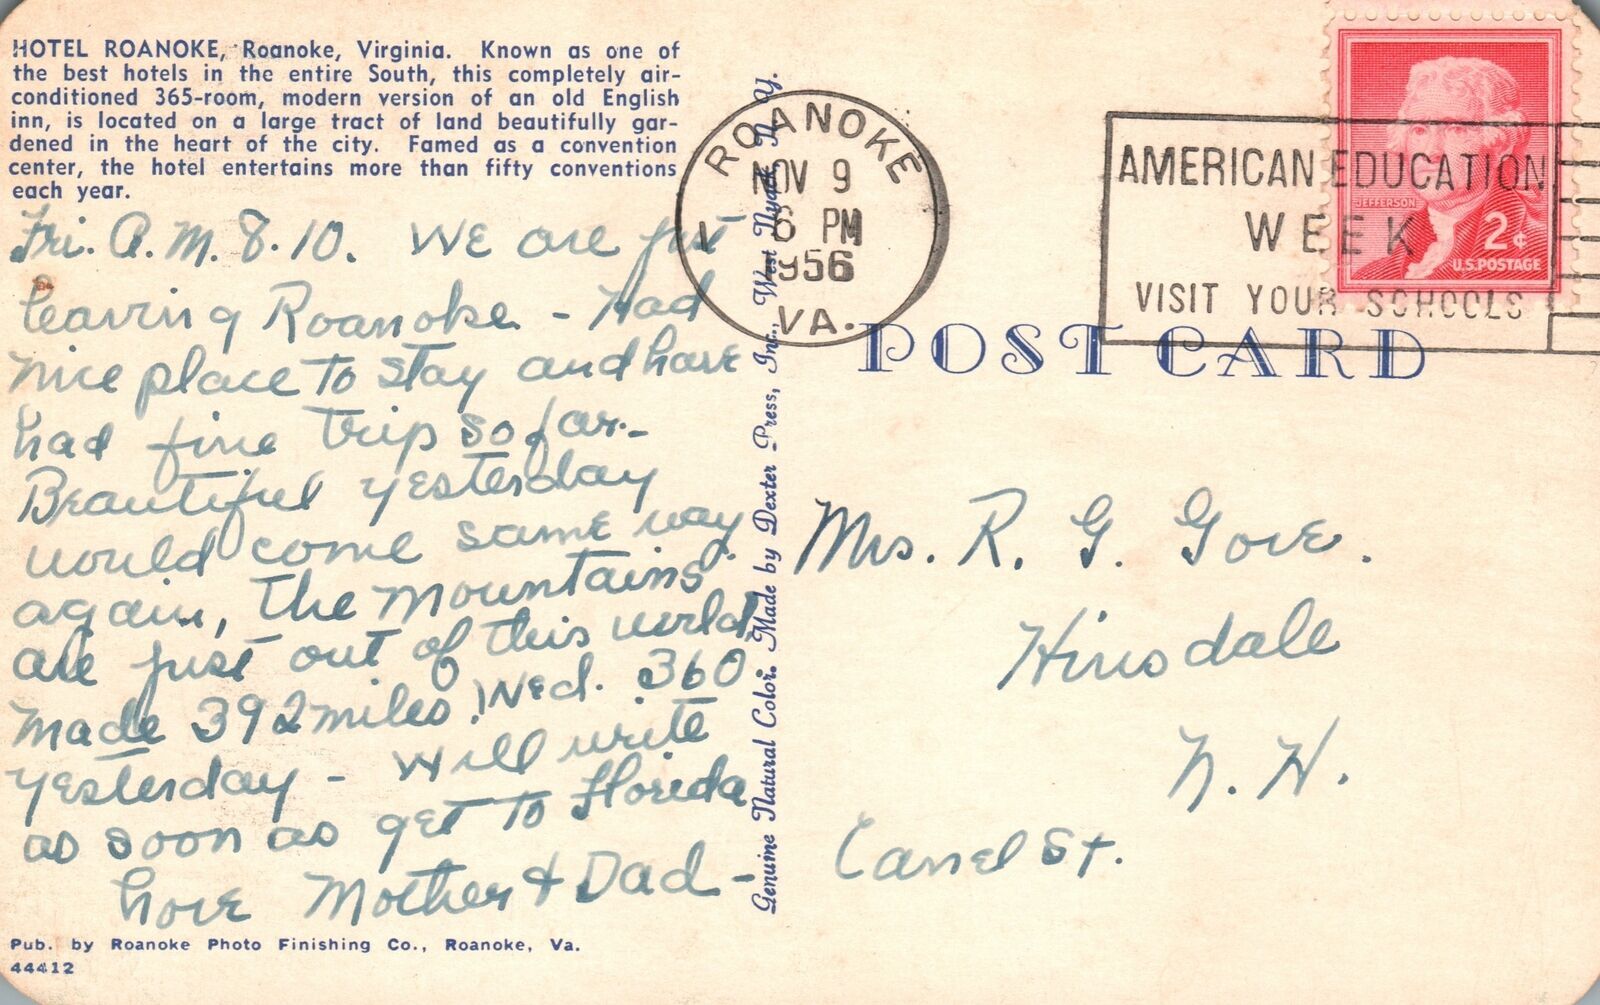 HOTEL ROANOKE, Roanoke, Virginia. Known as one of
the best hotels in the entire South, this completely air-
conditioned 365-room, modern version of an old English
inn, is located on a large tract of land beautifully gar-
dened in the heart of the city. Famed as a convention
center, the hotel entertains more than fifty conventions
each year.
Fri. A.M. 8.10. We are just
leaving Roanoke - Had
nice place to stay and have
had fine trip so far-
Beautiful yesterday
would come same way
again, the mountains
are just out of this world.
Made 392 miles Wed. 360
yesterday - Will write
as soon as get to Florida
Love Mother & Dad -
Pub. by Roanoke Photo Finishing Co., Roanoke, Va.
44412
Genuine Natural Color. Made by Dexter Press, Inc., West Nyack, N. Y.
ROANOKE
NOV 9
6 PM
1956
VA.
AMERICAN EDUCATION
WEEK
VISIT YOUR SCHOOLS
JEFFERSON
2¢
U.S. POSTAGE
POST CARD
Mrs. R. G. Gove.
Hinsdale
N. H.
Canel St.